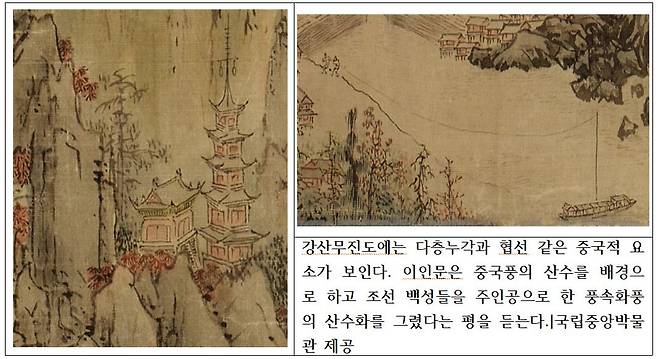 강산무진도에는 다층누각과 협선 같은 중국적 요
소가 보인다. 이인문은 중국풍의 산수를 배경으
로 하고 조선 백성들을 주인공으로 한 풍속화풍
의 산수화를 그렸다는 평을 듣는다.|국립중앙박물
관 제공